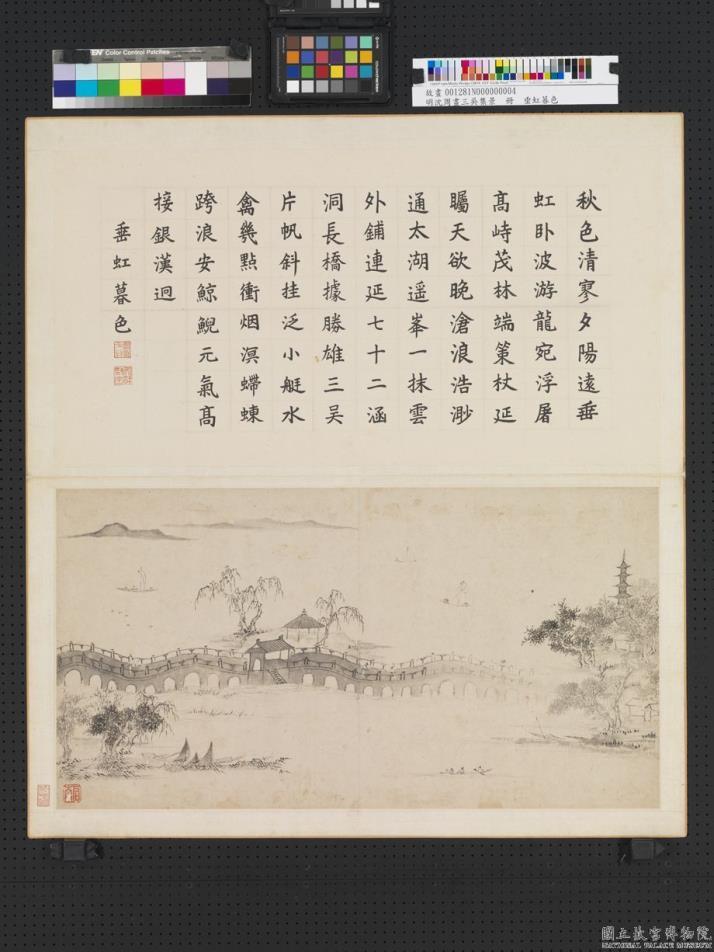 Color Control Patches
故畫001281N000000004
明沈周畫三吳集景 冊 垂虹暮色
秋色清寥夕陽遠垂
虹卧波游龍宛浮屠
髙峙茂林端策杖延
矚天欲晚滄浪浩渺
通太湖遥峯一抹雲
外鋪連延七十二涵
洞長橋據勝雄三吴
片帆斜挂泛小艇水
禽幾點衝烟溟螮蝀
跨浪安鯨鯢元氣髙
接銀漢迥
垂虹暮色
國立故宮博物院
NATIONAL PALACE MUSEUM